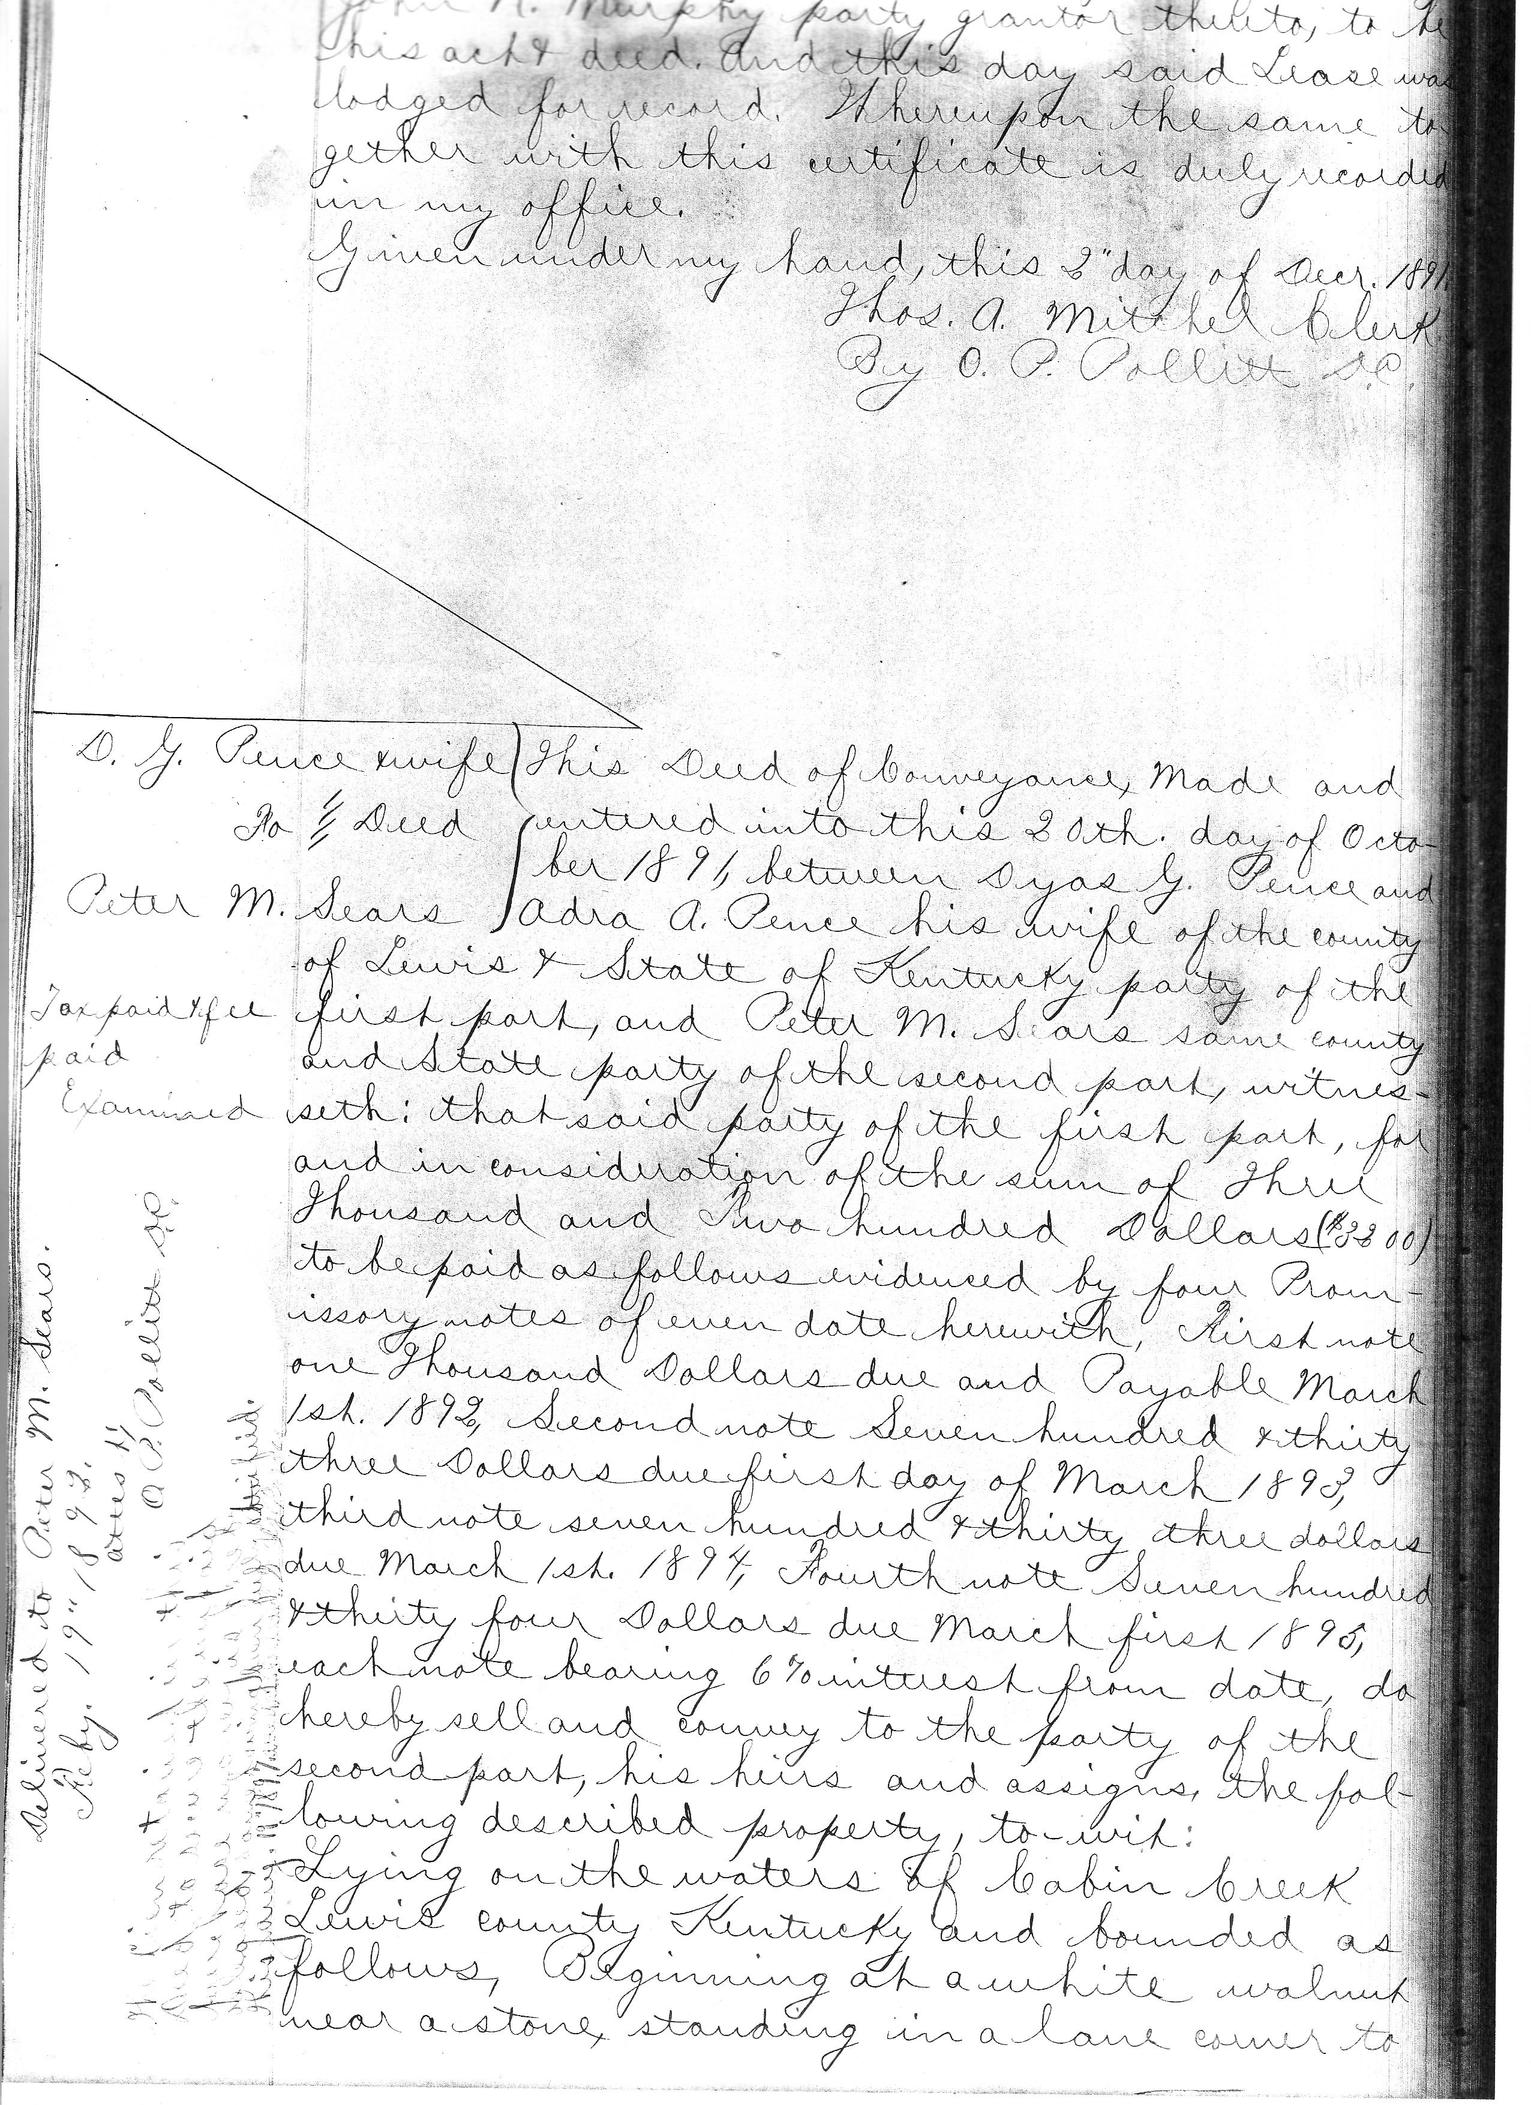 John N. Murphy party grantor thereto, to be
his act & deed. And this day said Lease was
lodged for record. Whereupon the same to
gether with this certificate is duly recorded
in my office.
Given under my hand, this 2" day of Decr. 1891.
Thos. A. Mitchel Clerk
By O. P. Pollitt D.C.
D. G. Pence & wife
To Deed
Peter M. Sears
This Deed of Conveyance, Made and
entered into this 20th. day of Octo-
ber 1891, between Dyas G. Pence and
Adra A. Pence his wife of the county
of Lewis & State of Kentucky party of the
first part, and Peter M. Sears same county
and State party of the second part, witnes-
seth: that said party of the first part, for
and in consideration of the sum of Three
Thousand and Two hundred Dollars ($3200)
to be paid as follows evidenced by four Prom-
issory notes of even date herewith, First note
one Thousand Dollars due and Payable March
1st. 1892, Second note Seven hundred & thirty
three Dollars due first day of March 1893,
third note seven hundred & thirty three dollars
due March 1st. 1894, Fourth note Seven hundred
& thirty four Dollars due March first 1895,
each note bearing 6% interest from date, do
hereby sell and convey to the party of the
second part, his heirs and assigns, the fol-
lowing described property, to-wit:
Lying on the waters of Cabin Creek
Lewis county Kentucky and bounded as
follows, Beginning at a white walnut
near a stone, standing in a lane corner to
Tax paid & fee
paid
Examined
Delivered to Peter M. Sears.
Feby. 19" 1892.
attest
O. P. Pollitt D.C.